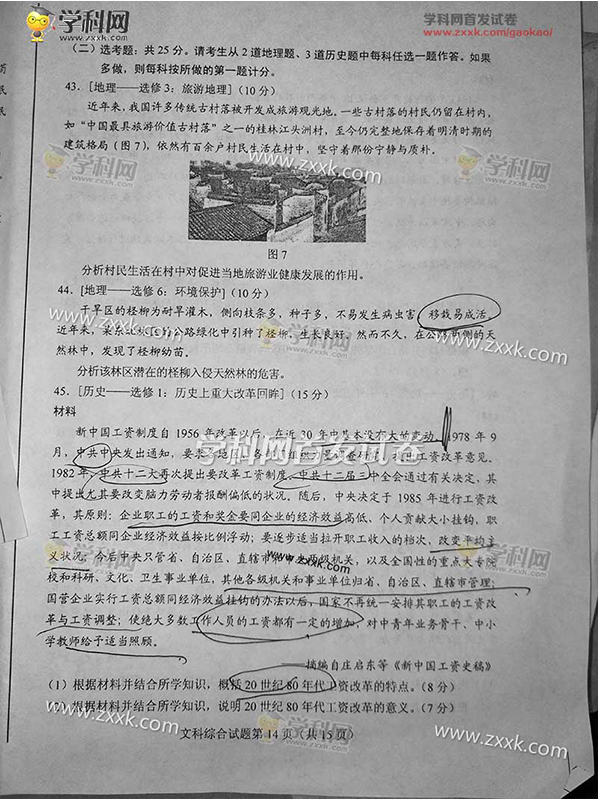 学科网
www.zxxk.com
学科网首发试卷
www.zxxk.com/gaokao/
(二)选考题：共 25 分。请考生从 2 道地理题、3 道历史题中每科任选一题作答。如果
多做，则每科按所做的第一题计分。
43. [地理——选修 3：旅游地理]（10 分）
近年来，我国许多传统古村落被开发成旅游观光地。一些古村落的村民仍留在村内，
如“中国最具旅游价值古村落”之一的桂林江头洲村，至今仍完整地保存着明清时期的
建筑格局（图 7），依然有百余户村民生活在村中，坚守着那份宁静与质朴。
图 7
分析村民生活在村中对促进当地旅游业健康发展的作用。
44. [地理——选修 6：环境保护]（10 分）
干旱区的柽柳为耐旱灌木，侧向枝条多，种子多，不易发生病虫害，移栽易成活。
近年来，某东北林区的公路绿化中引种了柽柳，生长良好。然而不久，在公路两侧的天
然林中，发现了柽柳幼苗。
分析该林区潜在的柽柳入侵天然林的危害。
45. [历史——选修 1：历史上重大改革回眸]（15 分）
材料
新中国工资制度自 1956 年改革以后，在近 30 年中基本没有大的变动。1978 年 9
月，中共中央发出通知，要求 工资改革意见。
1982 年，中共十二大再次提出要改革工资制度。中共十二届三中全会通过有关决定，其
中提出尤其要改变脑力劳动者报酬偏低的状况。随后，中央决定于 1985 年进行工资改
革，其原则：企业职工的工资和奖金要同企业的经济效益高低、个人贡献大小挂钩，职
工工资总额同企业经济效益按比例浮动；要逐步适当拉开职工收入的档次，改变平均主
义状况；今后中央只管省、自治区、直辖市 两级机关，以及全国性的重点大专院
校和科研、文化、卫生事业单位，其他各级机关和事业单位归省、自治区、直辖市管理；
国营企业实行工资总额同经济效益挂钩的办法以后，国家不再统一安排其职工的工资改
革与工资调整；使绝大多数工作人员的工资都有一定的增加，对中青年业务骨干、中小
学教师给予适当照顾。
——摘编自庄启东等《新中国工资史稿》
（1）根据材料并结合所学知识，概括 20 世纪 80 年代工资改革的特点。（8 分）
（2）根据材料并结合所学知识，说明 20 世纪 80 年代工资改革的意义。（7 分）
文科综合试题第 14 页（共 15 页）